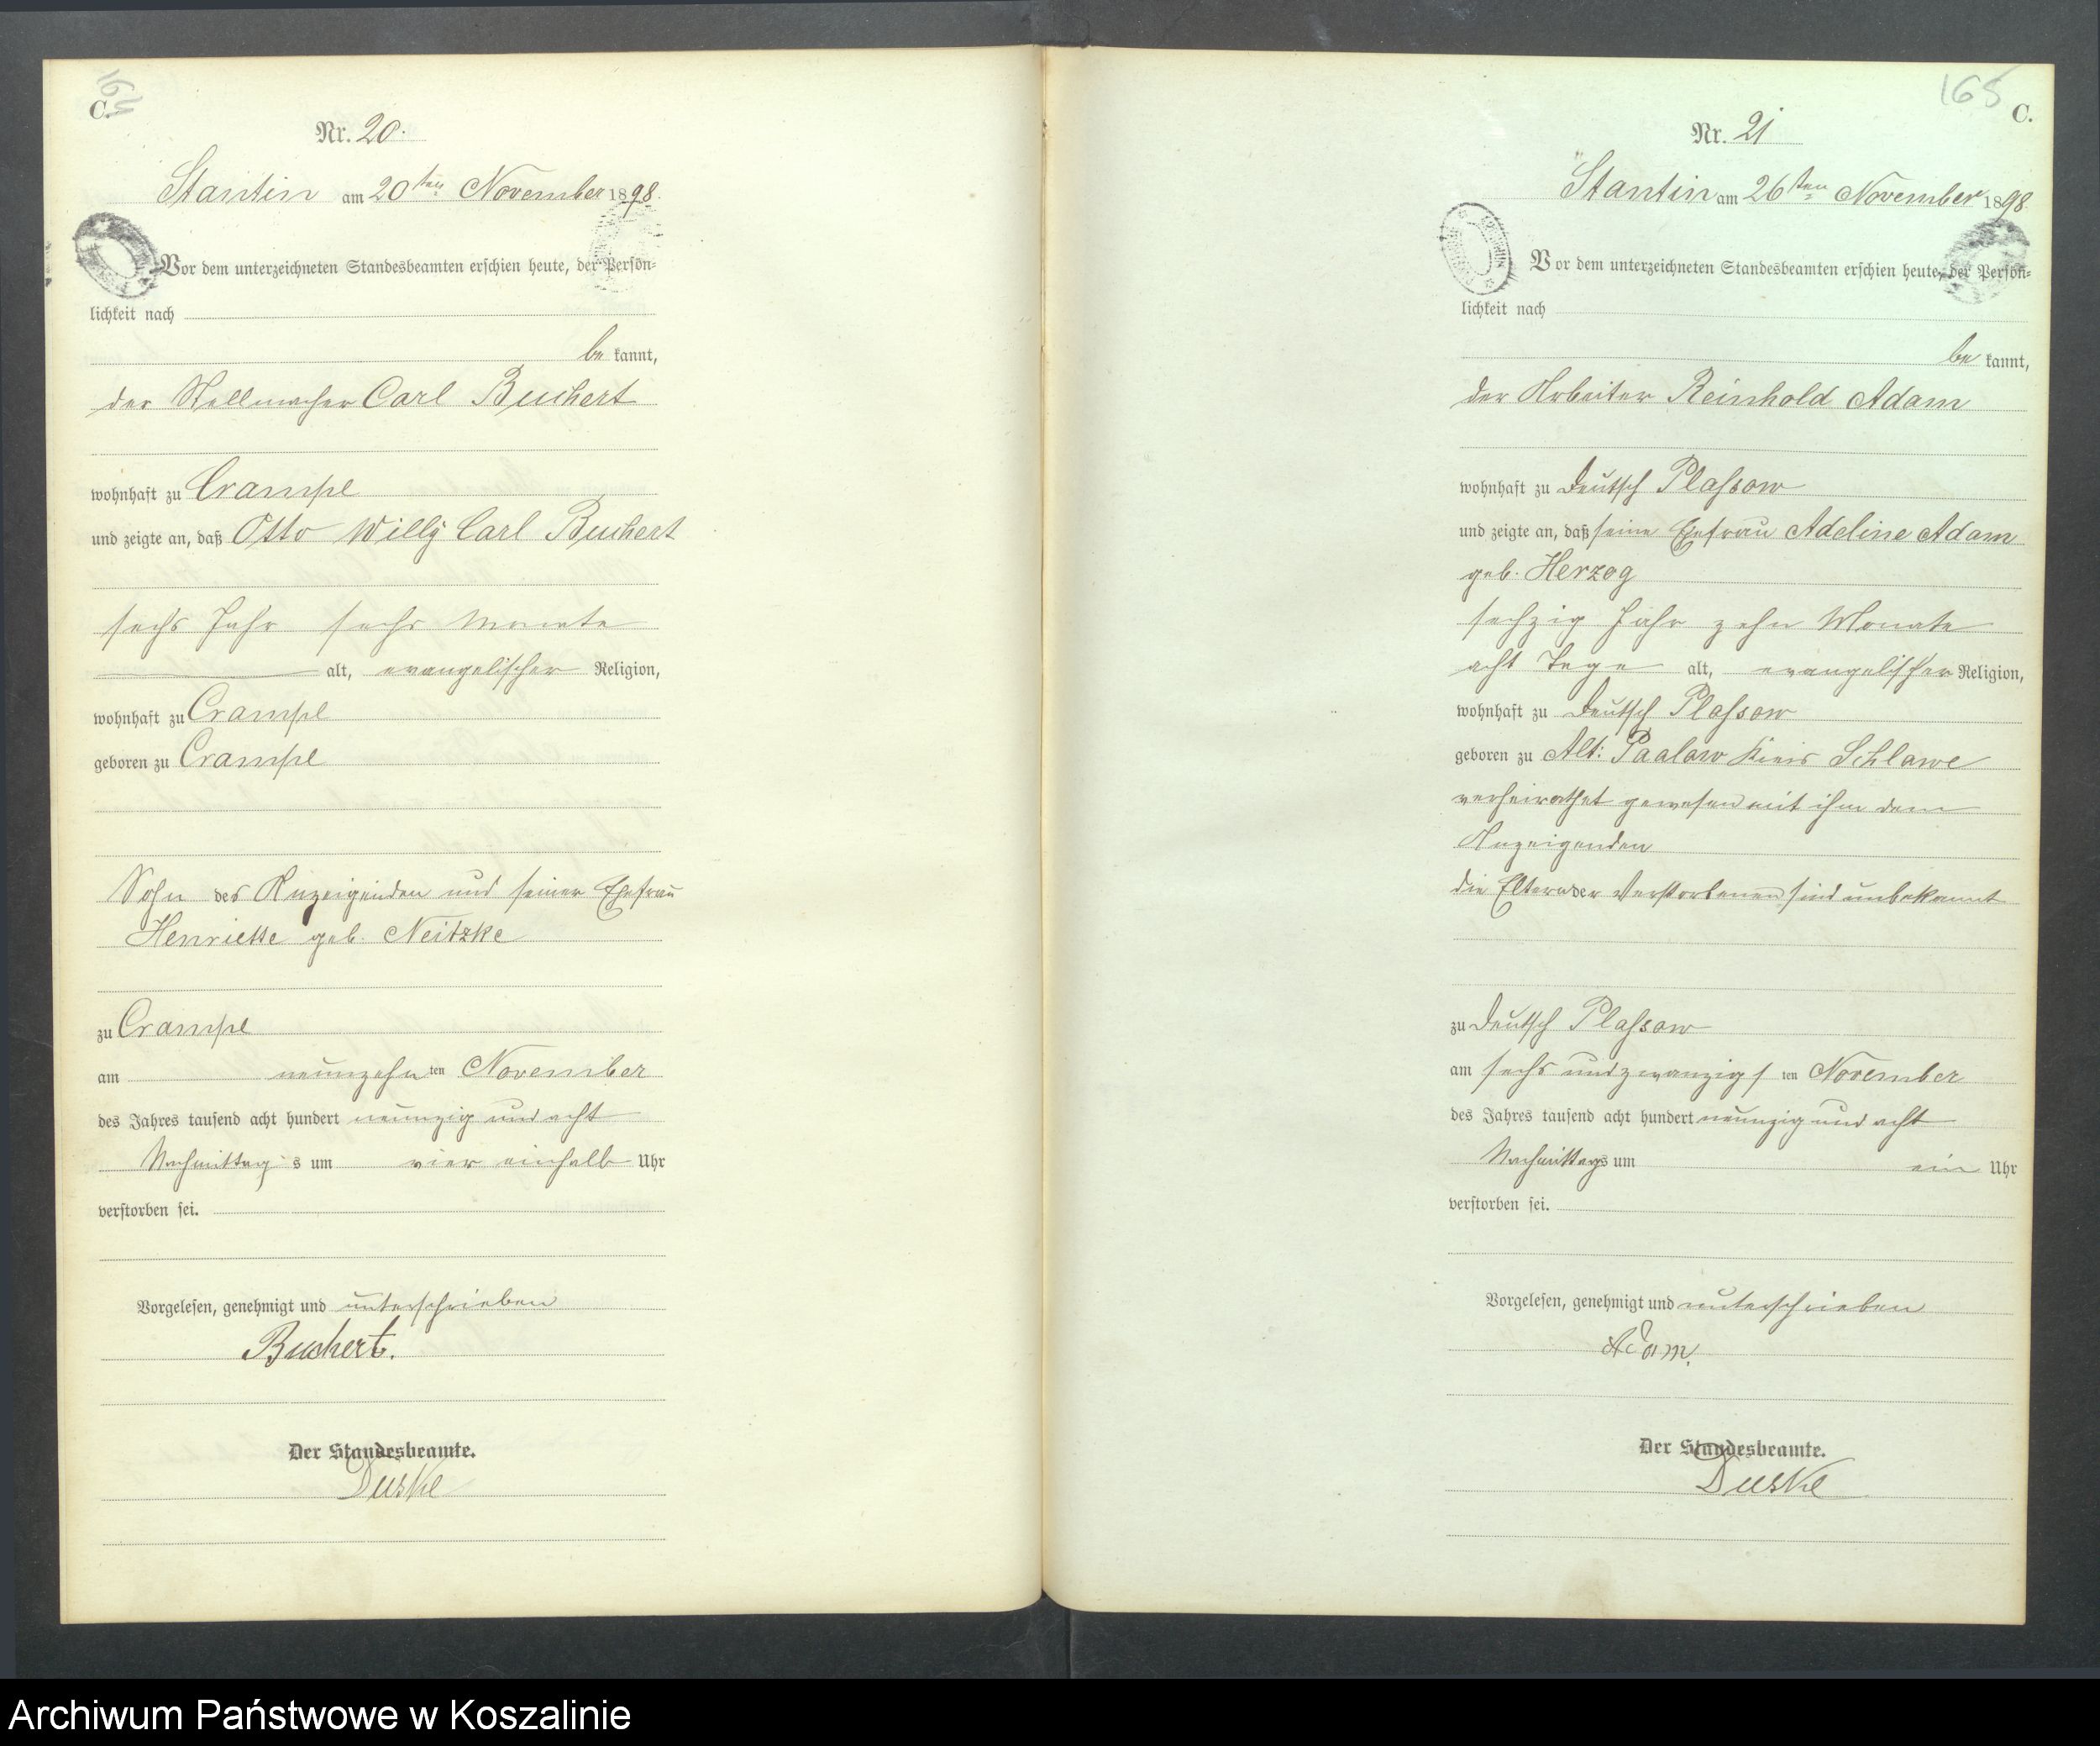 164
C.
Nr. 20.
Stantin am 20ten November 1898.
Vor dem unterzeichneten Standesbeamten erschien heute, der Persön-
lichkeit nach
be kannt,
der Stellmacher Carl Buchert
wohnhaft zu Crampe
und zeigte an, daß Otto Willy Carl Buchert
sechs Jahr sechs Monate
alt, evangelischer Religion,
wohnhaft zu Crampe
geboren zu Crampe
Sohn des Anzeigenden und seiner Ehefrau
Henriette geb. Neitzke
zu Crampe
am neunzehn ten November
des Jahres tausend acht hundert neunzig und acht
Nachmittag s um vier einhalb Uhr
verstorben sei.
Vorgelesen, genehmigt und unterschrieben
Buchert.
Der Standesbeamte.
Duske
165
C.
Nr. 21
Stantin am 26ten November 1898
Vor dem unterzeichneten Standesbeamten erschien heute, der Persön-
lichkeit nach
be kannt,
der Arbeiter Reinhold Adam
wohnhaft zu Deutsch Plassow
und zeigte an, daß seine Ehefrau Adeline Adam
geb. Herzog
sechzig Jahr zehn Monate
acht Tage alt, evangelischer Religion,
wohnhaft zu Deutsch Plassow
geboren zu Alt: Paalow Kreis Schlawe
verheirathet gewesen mit ihm dem
Anzeigenden
die Eltern der Verstorbenen sind unbekannt
zu Deutsch Plassow
am sechs und zwanzigs ten November
des Jahres tausend acht hundert neunzig und acht
Nachmittags um ein Uhr
verstorben sei.
Vorgelesen, genehmigt und unterschrieben
Adam.
Der Standesbeamte.
Duske
Archiwum Państwowe w Koszalinie